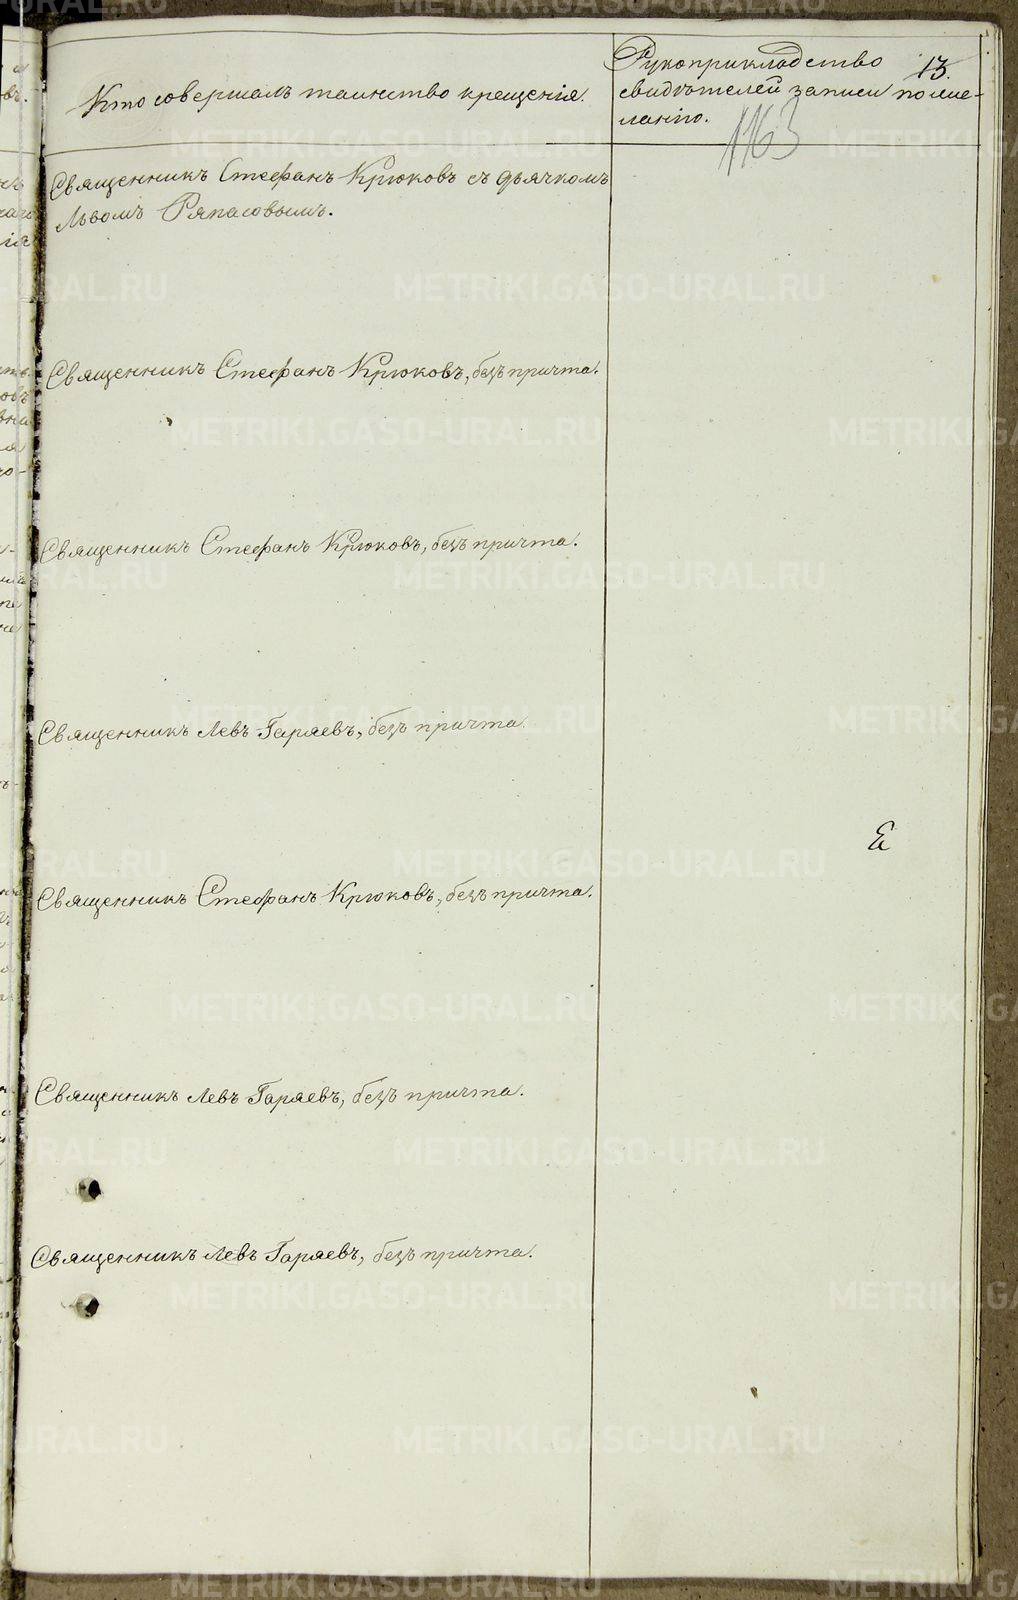 Кто совершалъ таинство крещенія.
Рукоприкладство
свидѣтелей записи по же-
ланію.
13.
1163
Священникъ Стефанъ Крюковъ съ дьячкомъ
Львомъ Ряпасовымъ.
Священникъ Стефанъ Крюковъ, безъ причта.
Священникъ Стефанъ Крюковъ, безъ причта.
Священникъ Левъ Гаряевъ, безъ причта.
Священникъ Стефанъ Крюковъ, безъ причта.
Священникъ Левъ Гаряевъ, безъ причта.
Священникъ Левъ Гаряевъ, безъ причта.
METRIKI.GASO-URAL.RU